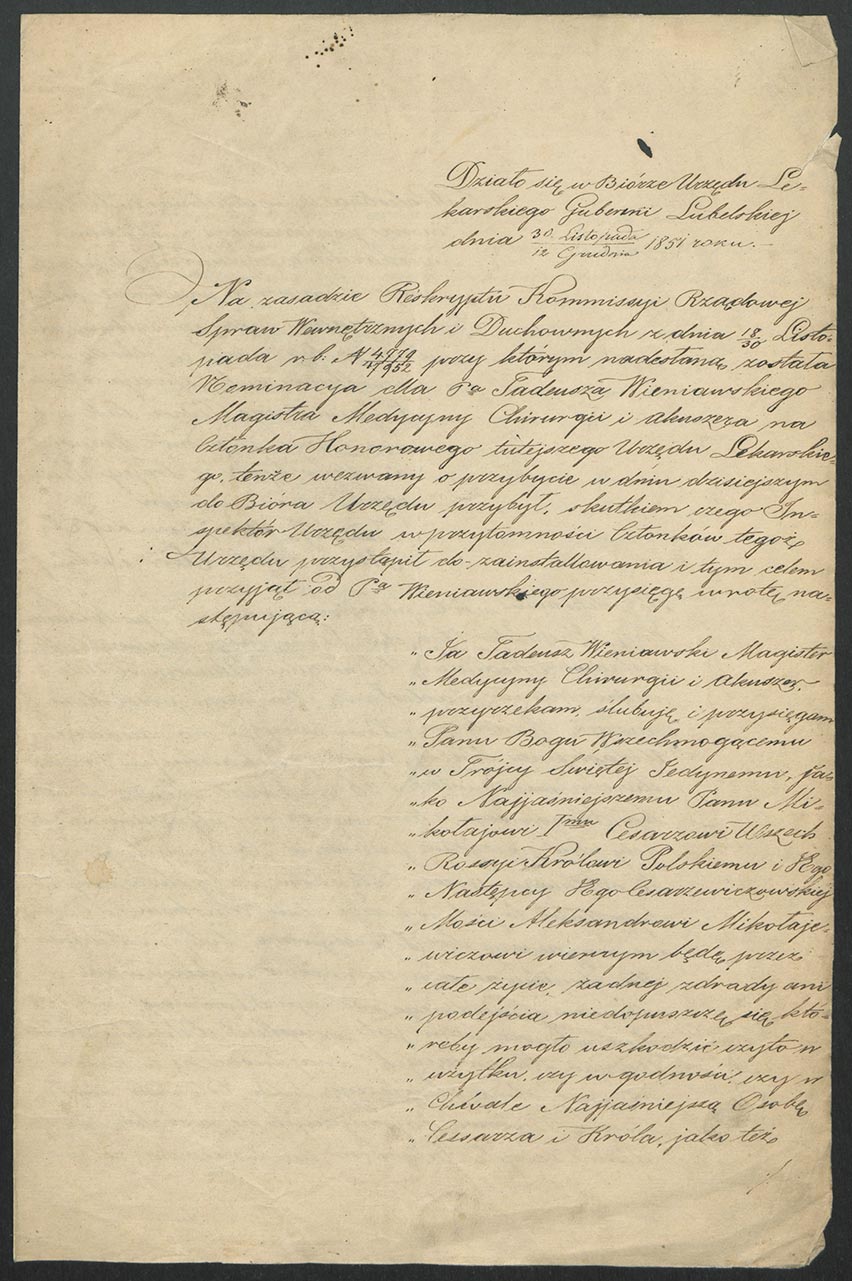 Działo się w Biórze Urzędu Le-
karskiego Gubernii Lubelskiej
dnia 30 Listopada / 12 Grudnia 1851 roku.
Na zasadzie Reskryptu Kommissyi Rządowej
Spraw Wewnętrznych i Duchownych z dnia 18/30 Listo-
pada r. b. N 4779/17952 przy którym nadesłaną została
Nominacya dla Pa Tadeusza Wieniawskiego
Magistra Medycyny Chirurgii i Akuszera na
Członka Honorowego tutejszego Urzędu Lekarskie-
go, tenże wezwany o przybycie w dniu dzisiejszym
do Bióra Urzędu przybył, skutkiem czego In-
spektór Urzędu w przytomności Członków tegoż
Urzędu przystąpił do zainstallowania i tym celem
przyjął od Pa Wieniawskiego przysięgę w rotę na-
stępującą:
„ Ja Tadeusz Wieniawski Magister
„ Medycyny Chirurgii i Akuszer,
„ przyrzekam, ślubuję i przysięgam
„ Panu Bogu Wszechmogącemu
„ w Trójcy Świętej Jedynemu, ja-
„ ko Najjaśniejszemu Panu Mi-
„ kołajowi Imu Cesarzowi Wszech
„ Rossyi Królowi Polskiemu i Jego
„ Następcy Jego Cesarzewiczowskiej
„ Mości Aleksandrowi Mikołaje-
„ wiczowi wiernym będę przez
„ całe życie, żadnej zdrady ani
„ podejścia niedopuszczę się któ-
„ reby mogło uszkodzić czyto w
„ użytku, czy w godności, czy w
„ Chwale Najjaśniejszą Osobę
„ Cesarza i Króla, jako też